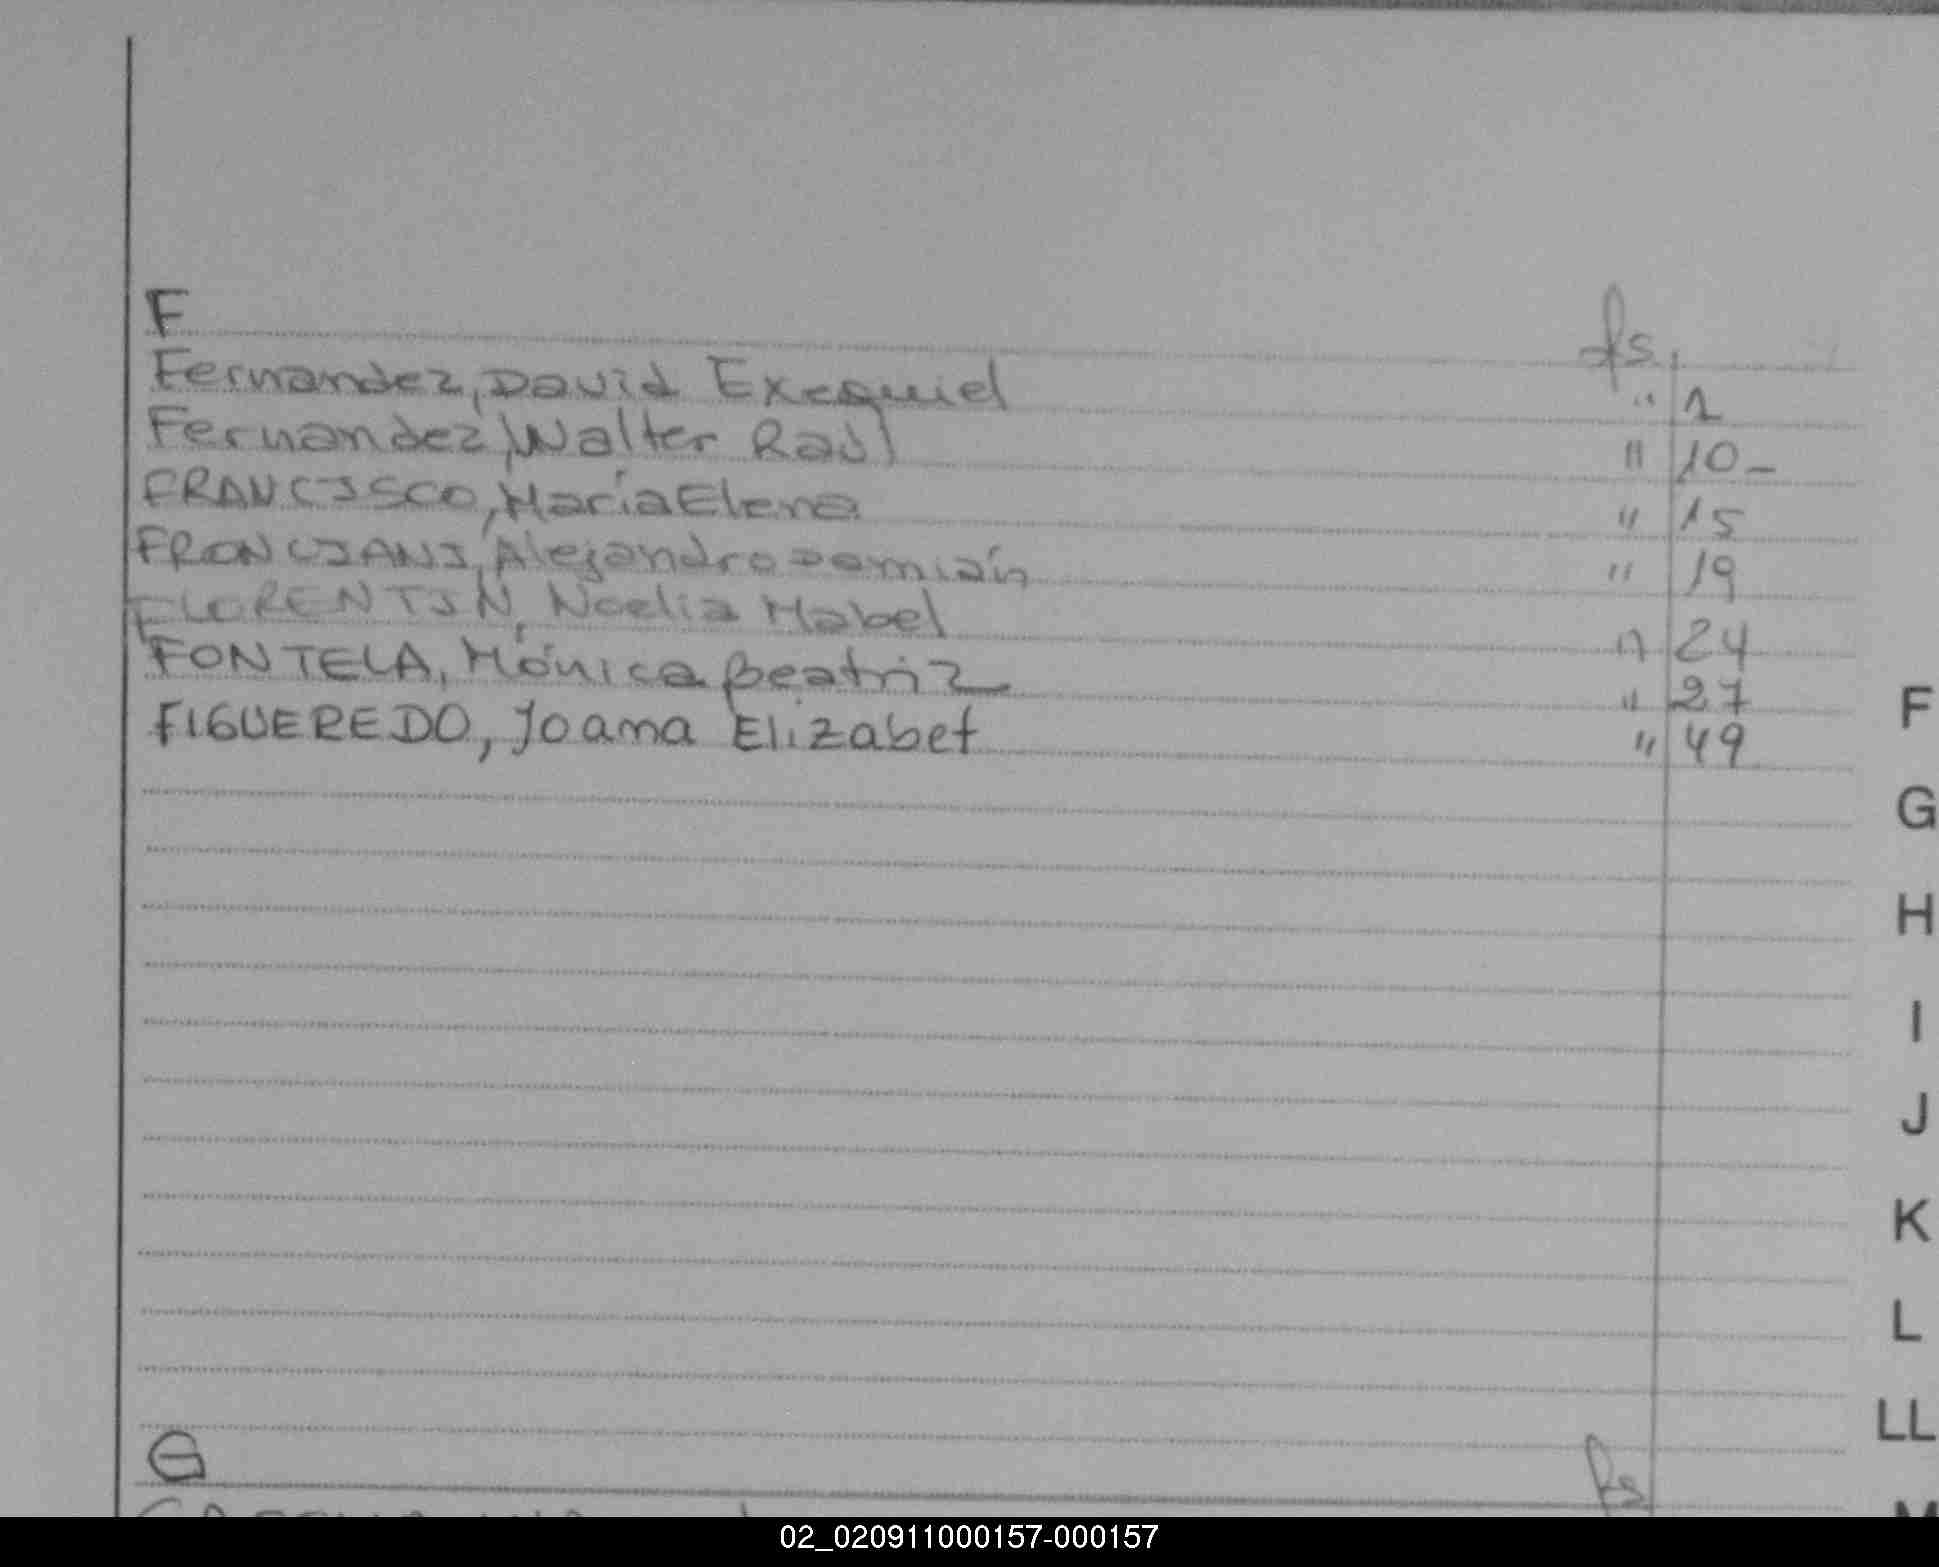 F fs.
Fernandez, David Exequiel " 1
Fernandez, Walter Raúl " 10 -
FRANCISCO, María Elena " 15
FRONCIANI, Alejandro Damián " 19
FLORENTIN, Noelia Mabel " 24
FONTELA, Mónica Beatriz " 27
FIGUEREDO, Joana Elizabet " 49
F
G
H
I
J
K
L
LL
G fs
M
02_020911000157-000157